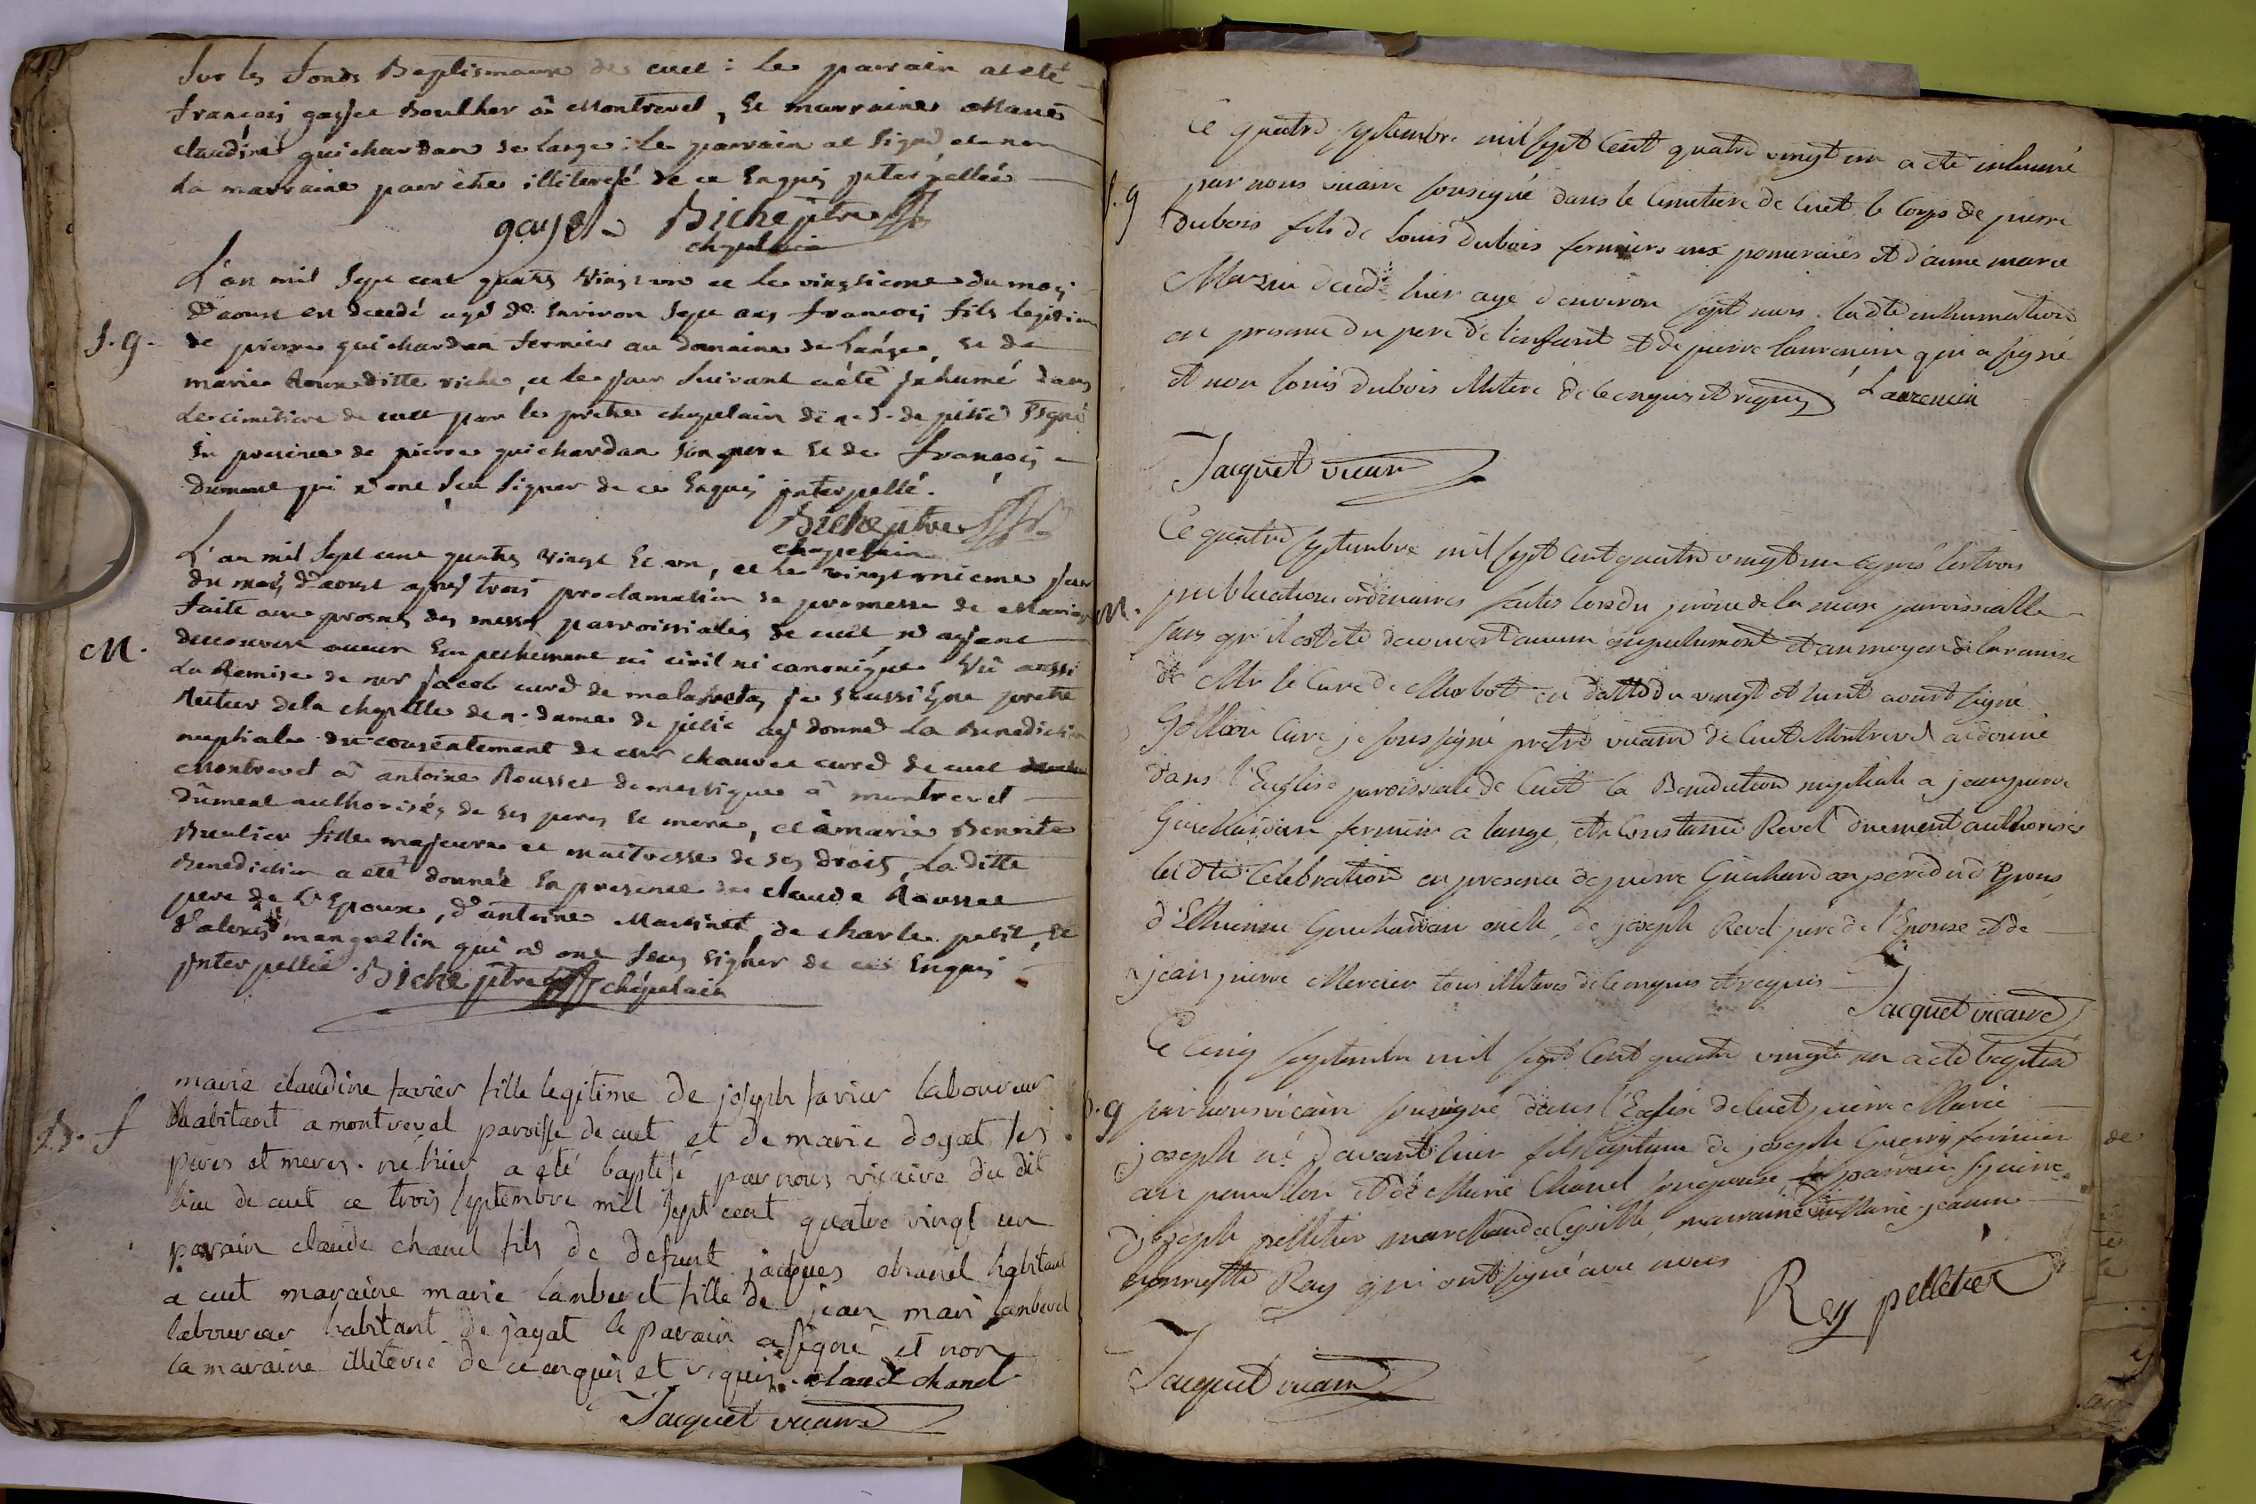 Sur les fonds Baptismaux de cuet : le parrain at eté
françois gayet Boulher à Montrevel, Et marraine Marie
claudine guichardan de lange : le parrain at Signé et non
la marraine pour être illiterée de ce Enquis jnterpellée
gayet Biche ptre
chapelain
L'an mil Sept cent quatre vingt un et le vingtieme du moy
d'aoust est decedé agé d'Environ Sept ans françois fils legitime
S. g. de pierre guichardan fermier au domaine de lange, Et de
marie Roux ditte riche, et le jour Suivant a été jnhumé dans
le cimetiere de cuet par le prêtre chapelain de n. d. de pitié Ssigné
En presence de pierre guichardan Son pere Et de françois
dumont qui n'ont Seu Signer de ce Enquis jnterpellé.
Biche ptre
chapelain
L'an mil Sept cent quatre vingt Et un, et le vingt unieme jour
du mois d'aoust apres trois proclamation de promesse de Mariage
faite aux prosnes des messes parroissiales de cuet, n'ayant
M. decouvert aucun Empechement ni civil ni canonique Vû aussi
La Remise de mr jacob curé de malafretaz je Soussigné prêtre
Recteur de la chapelle de n. dame de pitié ay donné La Benediction
nuptiale du consentement de mr chauvet curé de cuet
Montrevel à antoine Rousset domestique à montrevel
dûment authorisés de ses peres Et mere, et à marie Benoite
Beulier fille majeure et maitresse de ses droits, La ditte
Benediction a eté donnée En presence de claude Rousset
pere de L'Epoux, d'antoine Martinet, de charle petit, Et
d'alexis mangettin qui n'ont Seu signer de ce Enquis
jnterpellée. Biche ptre chapelain
marie claudine favier fille legitime de joseph favier laboureur
B. f habitant a montrevel paroisse de cuet et de marie dogat ses
peres et meres. né hier a eté baptisé par nous vicaire du dit
lieu de cuet ce trois septembre mil sept cent quatre vingt un
parain claude chanel fils de defunt jacques chanel habitant
a cuet maraine marie lamberet fille de jean mari lamberet
laboureur habitant de jayat le parain a signé et non
la maraine illiterée de ce enquis et requis. claude chanel
Jacquet vicaire
Ce quatre septembre mil sept cent quatre vingt un a eté inhumé
S. g par nous vicaire sousigné dans le Cimetiere de Cuet le Corps de pierre
Dubois fils de Louis Dubois fermiers aux pomeraies et d'anne marie
Mazuir decedé hier agé d'environ sept mois. ladte inhumation
en presence du pere de l'enfant et de pierre laurencin qui a signé
et non louis dubois illiteré de ce enquis et requis Laurencin
Jacquet vicaire
Ce quatre septembre mil sept cent quatre vingt un apres les trois
M. publications ordinaires faites lors du prône de la messe paroissialle
sans qu'il eut eté decouvert aucun empeschement et au moyen de la remise
de Mr le Curé de Marboz en datte du vingt et huit aoust signé
Curé je sous signé pretre vicaire de Cuet Montrevel ai donné
dans l'Eglise paroissiale de Cuet la Benediction nuptiale a jean pierre
Guichardan fermier a lange, et a Constance Revel duement authorisés
ladte Celebration en presence de pierre Guichardan pere dud Epoux
d'Ethienne Guichardan oncle, de joseph Revel pere de l'Epouse et de
jean pierre Mercier tous illiteres de ce enquis et requis
Jacquet vicaire
Ce Cinq septembre mil sept Cent quatre vingt un a eté baptisé
S. g par nous vicaire sousigné dans l'Eglise de Cuet pierre Marie
joseph né d'avant hier fils legitime de joseph Guerry fermier
au pavillon et de Marie Chanel son epouse parrain pierre
joseph pelletier marchand marraine Marie jeanne
Rey qui ont signé avec nous
Rey pelletier
Jacquet vicaire